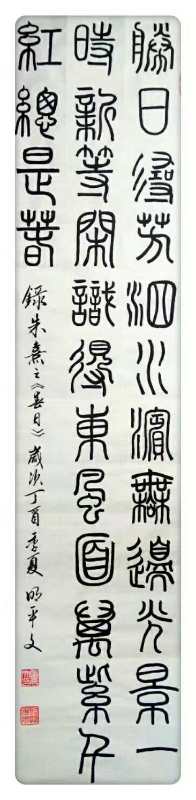 勝日尋芳泗水濱無邊光景一
時新等閑識得東風面萬紫千
紅總是春
錄朱熹之《春日》歲次丁酉季夏 平文